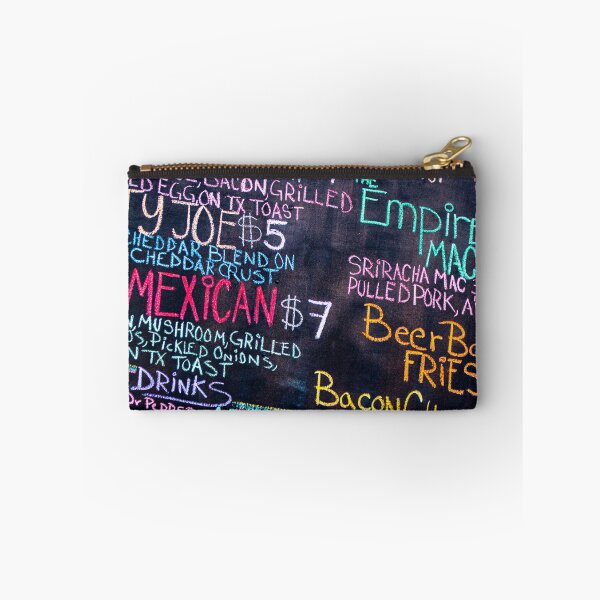 EGG, BACON GRILLED
ON TX TOAST
Y JOE $5
HEDDAR BLEND ON
CHEDDAR CRUST
MEXICAN $7
MUSHROOM, GRILLED
PICKLED ONIONS,
N TX TOAST
DRINKS
Dr PEPPE
THE
Empir
MAC
SRIRACHA MAC
PULLED PORK, A
BeerBa
FRIES
BACON